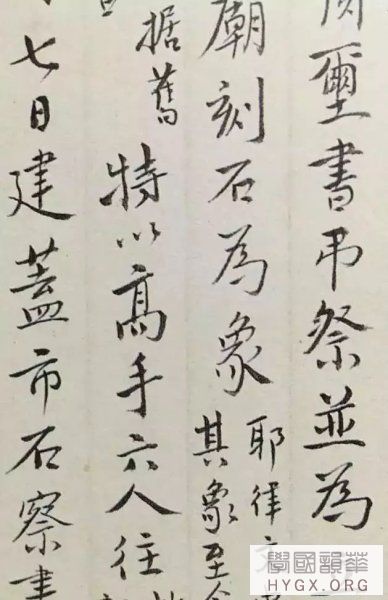 璽書弔祭並為
廟刻石為象
耶律
其象至
據舊
特以高手六人往
七日建蓋市石察書
華韻國學
HYGX.ORG